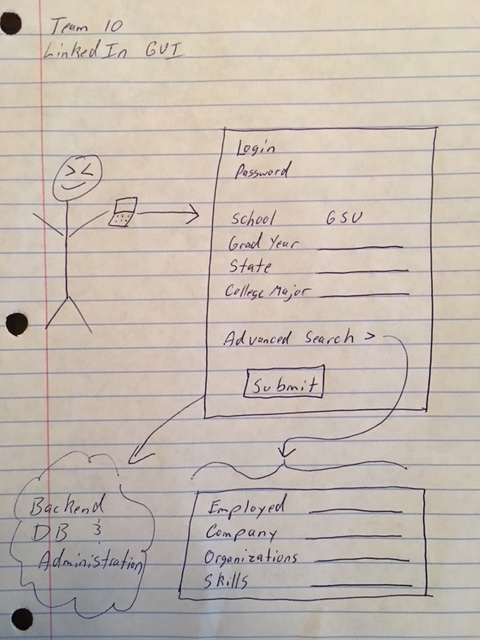 Team 10
LinkedIn GUI
Login
Password
School GSU
Grad Year
State
College Major
Advanced Search >
Submit
Backend
DB &
Administration
Employed
Company
Organizations
Skills